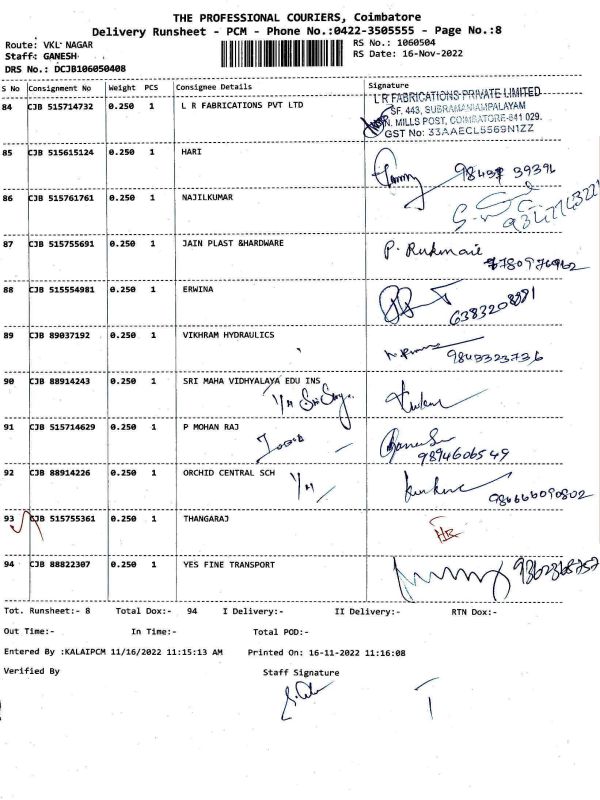 THE PROFESSIONAL COURIERS, Coimbatore
Delivery Runsheet - PCM - Phone No.:0422-3505555 - Page No.:8
Route: VKL NAGAR RS No.: 1060504
Staff: GANESH RS Date: 16-Nov-2022
DRS No.: DCJB106050408
S No Consignment No Weight PCS Consignee Details Signature
84 CJB 515714732 0.250 1 L R FABRICATIONS PVT LTD
L R FABRICATIONS PRIVATE LIMITED
SF. 443, SUBRAMANIAMPALAYAM
N. MILLS POST, COIMBATORE-641 029.
GST No: 33AAECL5569N1ZZ
85 CJB 515615124 0.250 1 HARI
86 CJB 515761761 0.250 1 NAJILKUMAR
87 CJB 515755691 0.250 1 JAIN PLAST &HARDWARE P. Rukmani
88 CJB 515554981 0.250 1 ERWINA
89 CJB 89037192 0.250 1 VIKHRAM HYDRAULICS
9843323736
90 CJB 88914243 0.250 1 SRI MAHA VIDHYALAYA EDU INS
91 CJB 515714629 0.250 1 P MOHAN RAJ
9894606549
92 CJB 88914226 0.250 1 ORCHID CENTRAL SCH
93 CJB 515755361 0.250 1 THANGARAJ
94 CJB 88822307 0.250 1 YES FINE TRANSPORT
Tot. Runsheet:- 8 Total Dox:- 94 I Delivery:- II Delivery:- RTN Dox:-
Out Time:- In Time:- Total POD:-
Entered By :KALAIPCM 11/16/2022 11:15:13 AM Printed On: 16-11-2022 11:16:08
Verified By Staff Signature